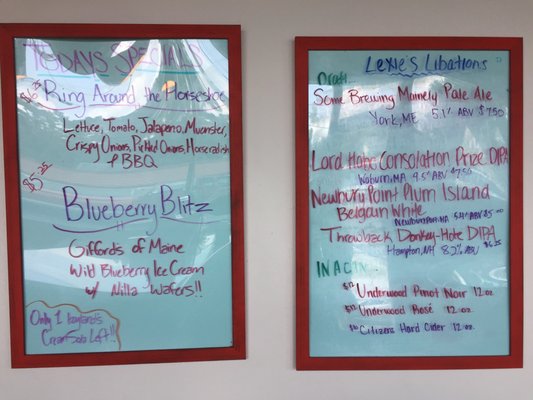 TODAYS SPECIALS
Ring Around the Horseshoe
Lettuce, Tomato, Jalapeno, Muenster,
Crispy Onions, Pickled Onions, Horseradish
& BBQ
$5.25
Blueberry Blitz
Giffords of Maine
Wild Blueberry Ice Cream
w/ Nilla Wafers!!
Only 1
Cream Soda Left!!
Lexie's Libations
Draft
Some Brewing Mainely Pale Ale
York, ME 5.1% ABV $7.50
Lord Hobo Consolation Prize DIPA
Woburn, MA 9.5% ABV $7.50
Newbury Point Plum Island
Belgain White
Newburyport, MA 5.4% ABV $5.00
Throwback Donkey-Hote DIPA
Hampton, NH 8.2% ABV $6.25
IN A CAN...
$12 Underwood Pinot Noir 12 oz
$12 Underwood Rosé 12 oz
Citizens Hard Cider 12 oz